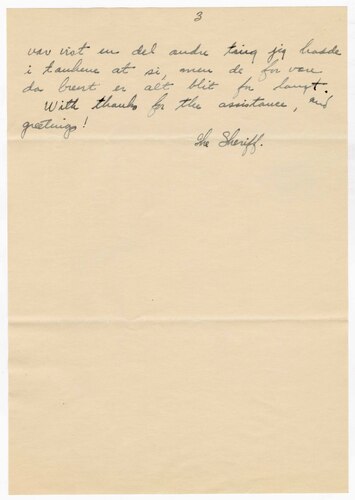 3
var vist en del andre ting jeg hadde
i tankene at si, men de for være
da brevet er alt blit for langt.
With thanks for the assistance, and
greetings!
The Sheriff.